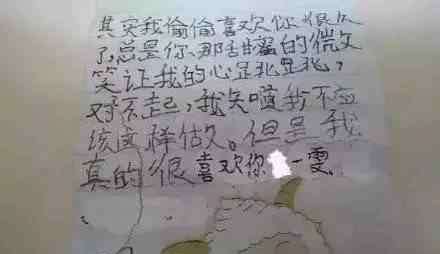 其实我偷偷喜欢你很久
了,总是你那甜蜜的微文
笑让我的心跳跳,
对不起,我知道我不应
该这样做。但是我
真的很喜欢你 一雯